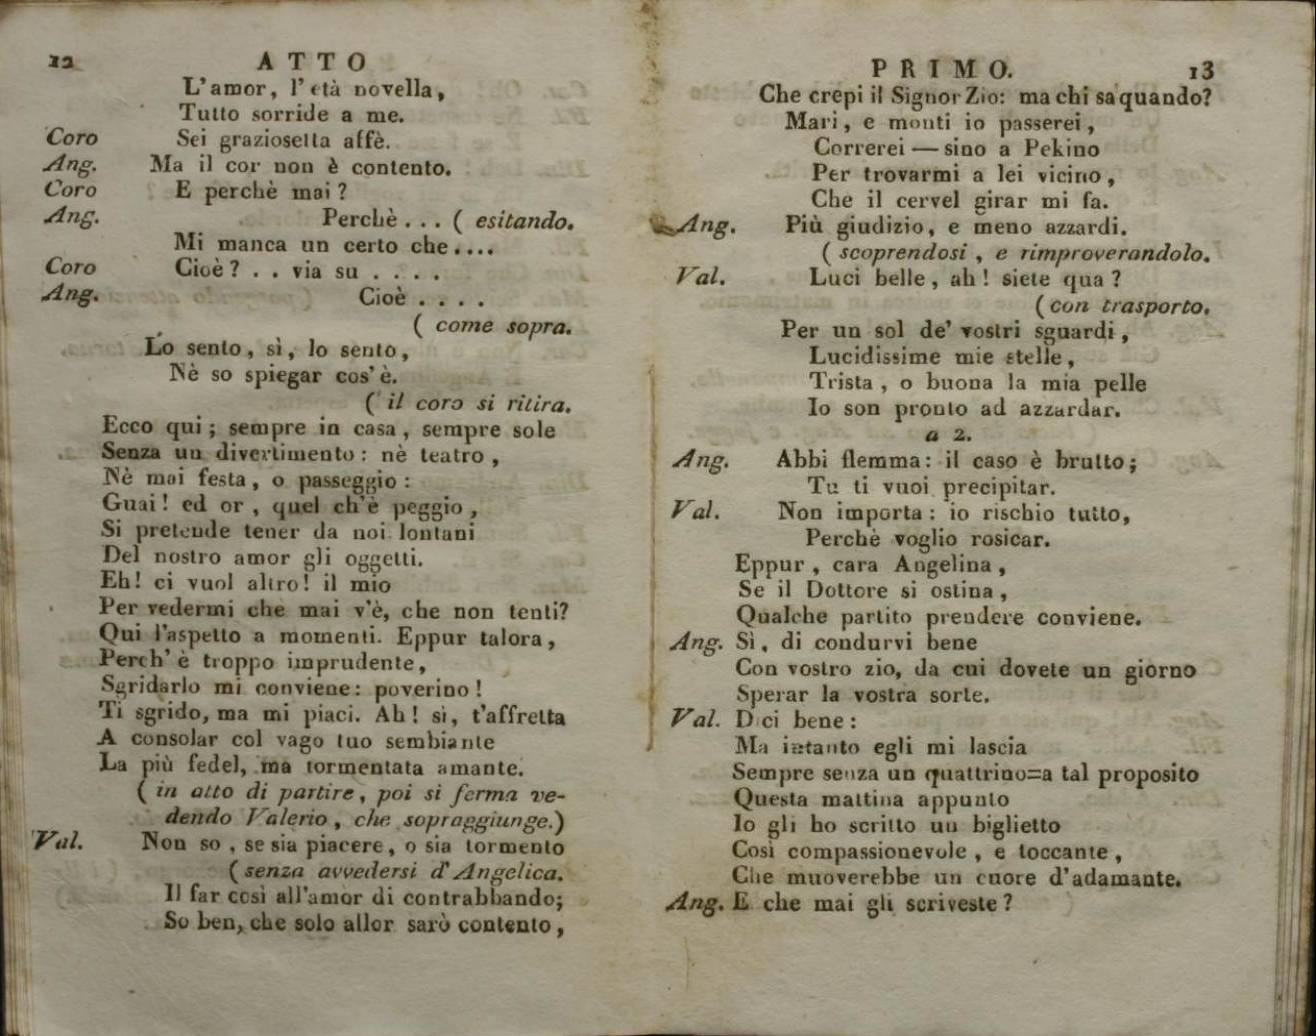 12
ATTO
L'amor, l'età novella,
Tutto sorride a me.
Coro Sei graziosetta affè.
Ang. Ma il cor non è contento.
Coro E perchè mai?
Ang. Perchè... ( esitando.
Mi manca un certo che....
Coro Cioè? . . via su . . . .
Ang. Cioè . . . .
( come sopra.
Lo sento, sì, lo sento,
Nè so spiegar cos'è.
( il coro si ritira.
Ecco qui; sempre in casa, sempre sole
Senza un divertimento: nè teatro,
Nè mai festa, o passeggio:
Guai! ed or, quel ch'è peggio,
Si pretende tener da noi lontani
Del nostro amor gli oggetti.
Eh! ci vuol altro! il mio
Per vedermi che mai v'è, che non tenti?
Qui l'aspetto a momenti. Eppur talora,
Perch' è troppo imprudente,
Sgridarlo mi conviene: poverino!
Ti sgrido, ma mi piaci. Ah! sì, t'affretta
A consolar col vago tuo sembiante
La più fedel, ma tormentata amante.
( in atto di partire, poi si ferma ve-
dendo Valerio, che sopraggiunge.)
Val. Non so, se sia piacere, o sia tormento
( senza avvedersi d'Angelica.
Il far così all'amor di contrabbando;
So ben, che solo allor sarò contento,
PRIMO.
13
Che crepi il Signor Zio: ma chi sa quando?
Mari, e monti io passerei,
Correrei — sino a Pekino
Per trovarmi a lei vicino,
Che il cervel girar mi fa.
Ang. Più giudizio, e meno azzardi.
( scoprendosi, e rimproverandolo.
Val. Luci belle, ah! siete qua?
( con trasporto.
Per un sol de' vostri sguardi,
Lucidissime mie stelle,
Trista, o buona la mia pelle
Io son pronto ad azzardar.
a 2.
Ang. Abbi flemma: il caso è brutto;
Tu ti vuoi precipitar.
Val. Non importa: io rischio tutto,
Perchè voglio rosicar.
Eppur, cara Angelina,
Se il Dottore si ostina,
Qualche partito prendere conviene.
Ang. Sì, di condurvi bene
Con vostro zio, da cui dovete un giorno
Sperar la vostra sorte.
Val. Dici bene:
Ma intanto egli mi lascia
Sempre senza un quattrino=a tal proposito
Questa mattina appunto
Io gli ho scritto un biglietto
Così compassionevole, e toccante,
Che muoverebbe un cuore d'adamante.
Ang. E che mai gli scriveste?